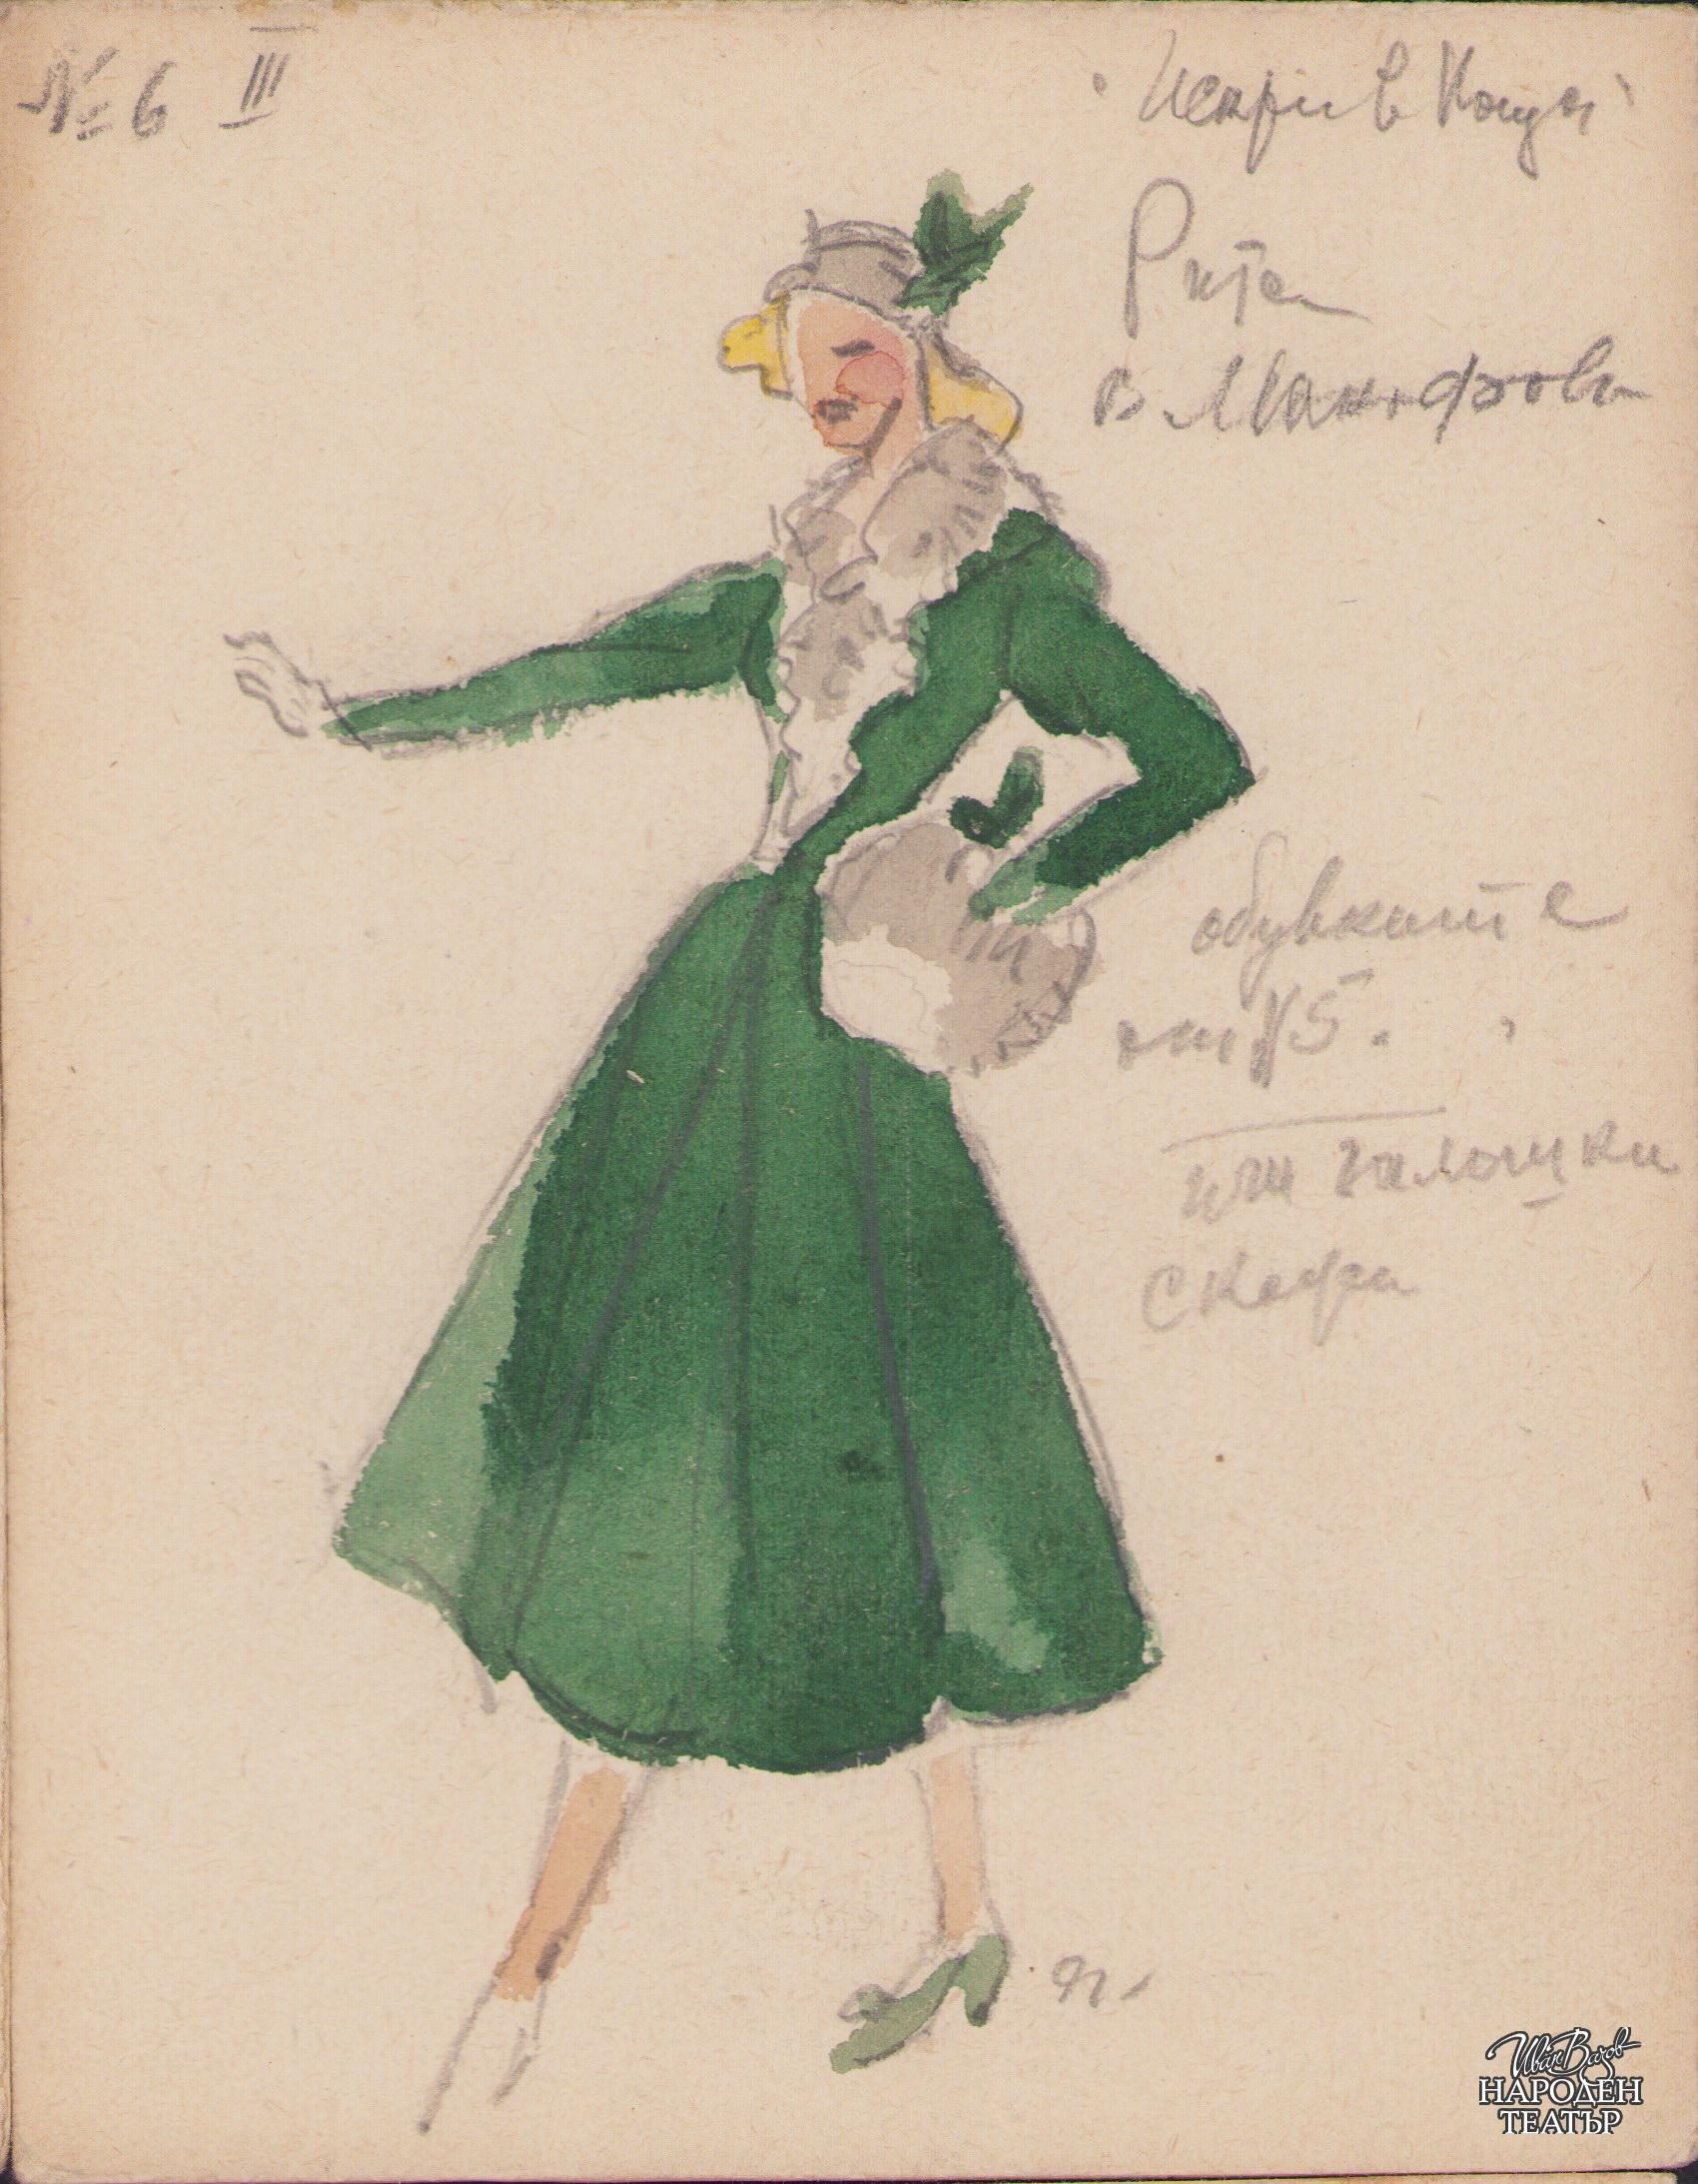 № 6 III
"Искри в Нощта"
Рита
В
обувките
от №5.
или галошки
с кафи
Иван Вазов
НАРОДЕН
ТЕАТЪР